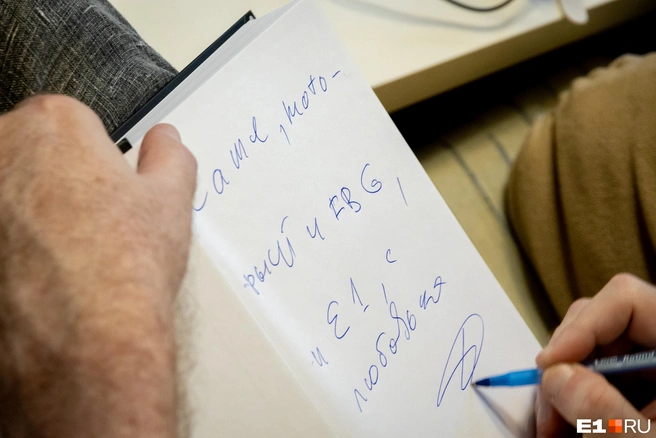 Саше, кото-
рый и EBG,
и E1, с
любовью
E1.RU